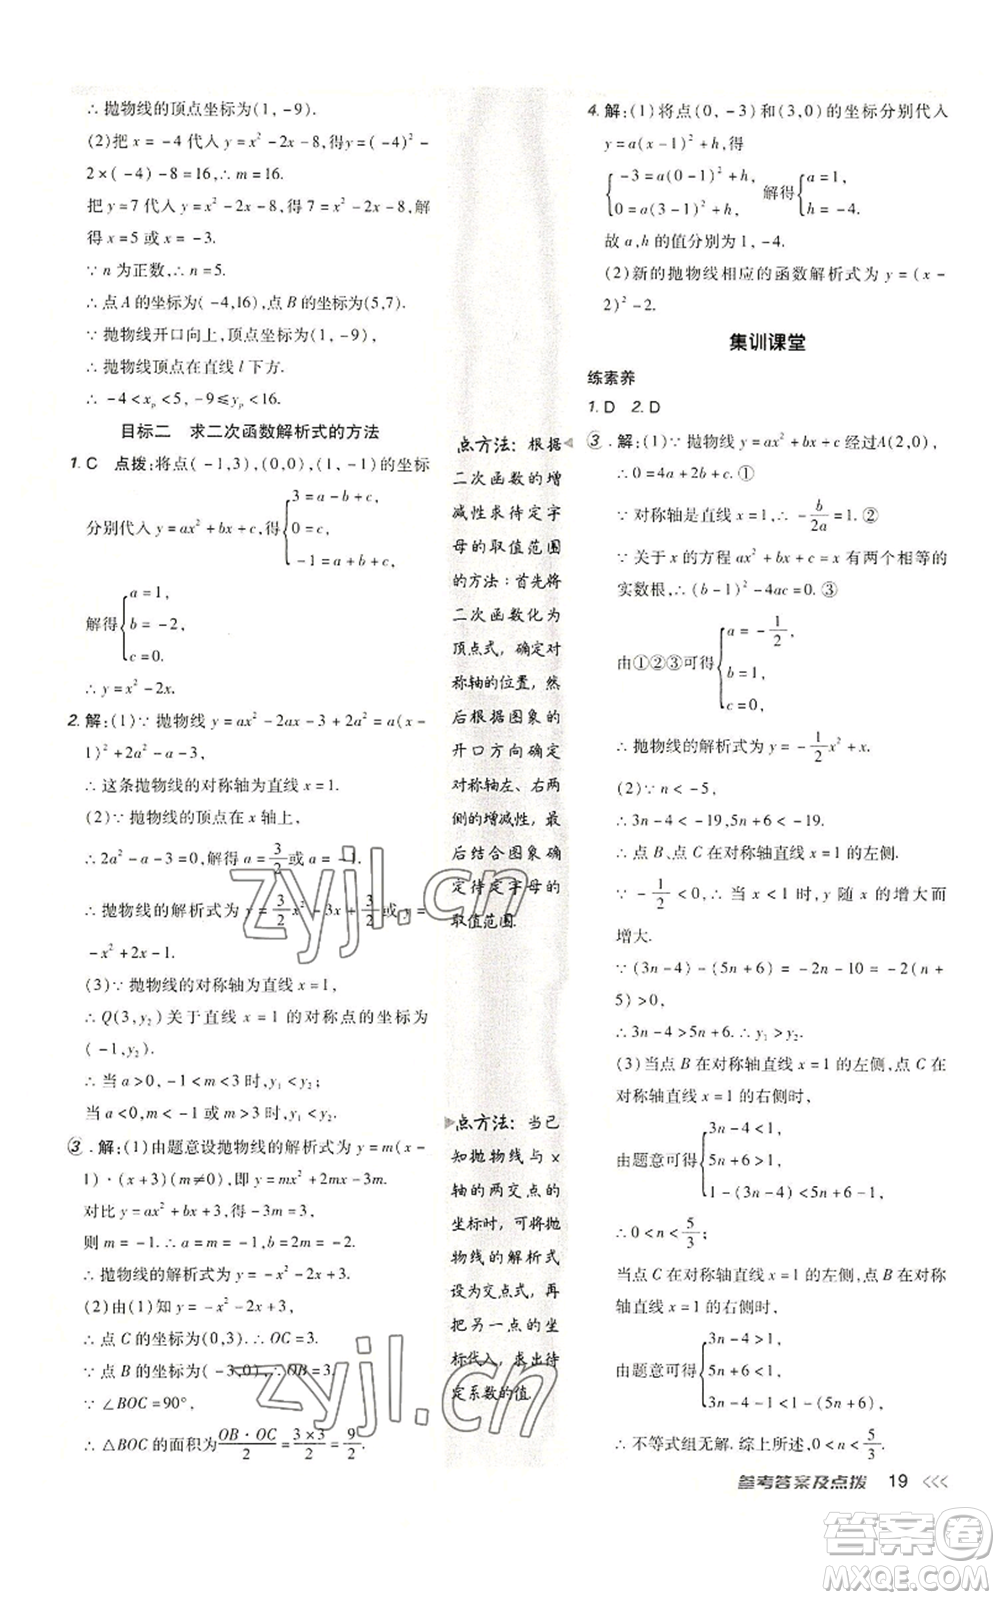 ∴ 抛物线的顶点坐标为(1, -9).
(2)把 x = -4代入 y = x² - 2x - 8, 得 y = (-4)² -
2×(-4) - 8 = 16, ∴ m = 16.
把 y = 7 代入 y = x² - 2x - 8, 得 7 = x² - 2x - 8, 解
得 x = 5 或 x = -3.
∵ n 为正数, ∴ n = 5.
∴ 点 A 的坐标为(-4,16), 点 B 的坐标为(5,7).
∵ 抛物线开口向上, 顶点坐标为(1, -9),
∴ 抛物线顶点在直线 l 下方.
∴ -4 < xₚ < 5, -9 ≤ yₚ < 16.
目标二 求二次函数解析式的方法
1. C 点拨: 将点(-1,3), (0,0), (1, -1)的坐标
分别代入 y = ax² + bx + c, 得 { 3 = a - b + c, 0 = c, -1 = a + b + c,
解得 { a = 1, b = -2, c = 0.
∴ y = x² - 2x.
2. 解: (1)∵ 抛物线 y = ax² - 2ax - 3 + 2a² = a(x -
1)² + 2a² - a - 3,
∴ 这条抛物线的对称轴为直线 x = 1.
(2)∵ 抛物线的顶点在 x 轴上,
∴ 2a² - a - 3 = 0, 解得 a = 3/2 或 a = -1.
∴ 抛物线的解析式为 y = 3/2 x² - 3x + 3/2 或 y =
-x² + 2x - 1.
(3)∵ 抛物线的对称轴为直线 x = 1,
∴ Q(3, y₂) 关于直线 x = 1 的对称点的坐标为
(-1, y₂).
∴ 当 a > 0, -1 < m < 3 时, y₁ < y₂;
当 a < 0, m < -1 或 m > 3 时, y₁ < y₂.
3. 解: (1)由题意设抛物线的解析式为 y = m(x -
1)·(x + 3)(m ≠ 0), 即 y = mx² + 2mx - 3m.
对比 y = ax² + bx + 3, 得 -3m = 3,
则 m = -1. ∴ a = m = -1, b = 2m = -2.
∴ 抛物线的解析式为 y = -x² - 2x + 3.
(2)由(1)知 y = -x² - 2x + 3,
∴ 点 C 的坐标为(0,3). ∴ OC = 3.
∵ 点 B 的坐标为(-3,0), ∴ OB = 3.
∵ ∠BOC = 90°,
∴ △BOC 的面积为 OB·OC/2 = 3×3/2 = 9/2.
点方法: 根据
二次函数的增
减性求待定字
母的取值范围
的方法: 首先将
二次函数化为
顶点式, 确定对
称轴的位置, 然
后根据图象的
开口方向确定
对称轴左、右两
侧的增减性, 最
后结合图象确
定待定字母的
取值范围.
点方法: 当已
知抛物线与 x
轴的两交点的
坐标时, 可将抛
物线的解析式
设为交点式, 再
把另一点的坐
标代入, 求出待
定系数的值.
4. 解: (1)将点(0, -3)和(3,0)的坐标分别代入
y = a(x - 1)² + h, 得
{ -3 = a(0 - 1)² + h, 0 = a(3 - 1)² + h, 解得 { a = 1, h = -4.
故 a, h 的值分别为 1, -4.
(2)新的抛物线相应的函数解析式为 y = (x -
2)² - 2.
集训课堂
练素养
1. D 2. D
3. 解: (1)∵ 抛物线 y = ax² + bx + c 经过A(2,0),
∴ 0 = 4a + 2b + c. ①
∵ 对称轴是直线 x = 1, ∴ -b/2a = 1. ②
∵ 关于 x 的方程 ax² + bx + c = x 有两个相等的
实数根, ∴ (b - 1)² - 4ac = 0. ③
由①②③可得 { a = -1/2, b = 1, c = 0,
∴ 抛物线的解析式为 y = -1/2 x² + x.
(2)∵ n < -5,
∴ 3n - 4 < -19, 5n + 6 < -19.
∴ 点 B、点 C 在对称轴直线 x = 1 的左侧.
∵ -1/2 < 0, ∴ 当 x < 1时, y 随 x 的增大而
增大.
∵ (3n - 4) - (5n + 6) = -2n - 10 = -2(n +
5) > 0,
∴ 3n - 4 > 5n + 6. ∴ y₁ > y₂.
(3)当点 B 在对称轴直线 x = 1 的左侧, 点 C 在
对称轴直线 x = 1 的右侧时,
由题意可得 { 3n - 4 < 1, 5n + 6 > 1, 1 - (3n - 4) < 5n + 6 - 1,
∴ 0 < n < 5/3;
当点 C 在对称轴直线 x = 1 的左侧, 点 B 在对称
轴直线 x = 1 的右侧时,
由题意可得 { 3n - 4 > 1, 5n + 6 < 1, 3n - 4 - 1 < 1 - (5n + 6),
∴ 不等式组无解. 综上所述, 0 < n < 5/3.
参考答案及点拨 19 <<<
zyjl.cn
zyjl.cn
答案卷
MXQE.COM